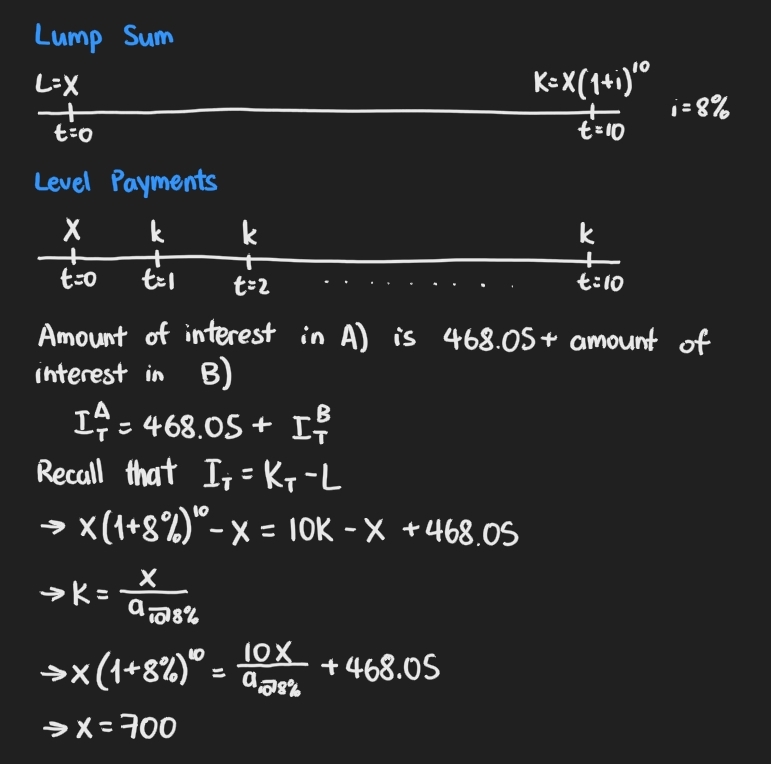 Lump Sum
L=X K=X(1+i)^10
t=0 t=10 i=8%
Level Payments
X k k k
t=0 t=1 t=2 . . . . . . . . . t=10
Amount of interest in A) is 468.05+ amount of
interest in B)
I_T^A = 468.05 + I_T^B
Recall that I_T = K_T - L
→ X(1+8%)^10 - X = 10K - X + 468.05
→ K = X / a_10⌉8%
→ X(1+8%)^10 = 10X / a_10⌉8% + 468.05
→ X = 700